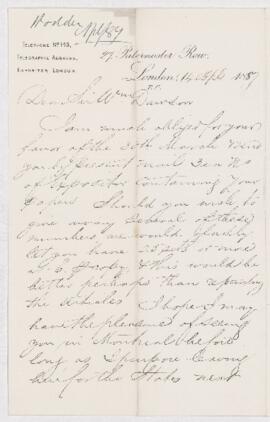 Hodder Apl/87
TELEPHONE No 113,
TELEGRAPHIC ADDRESS,
EXPOSITOR LONDON.
27, Paternoster Row,
London: 14 Apl 1887
Dear Sir Wm Dawson
I am much obliged for your
favor of the 30th March. We
present until
of Expositor containing your
papers. Should you wish to
give away several of these
numbers, we would gladly
let you have 25 sets or more
at & this would be
better perhaps than
the articles. I hope I may
have the pleasure of seeing
you in Montreal before
long as I purpose leaving
here for the States next